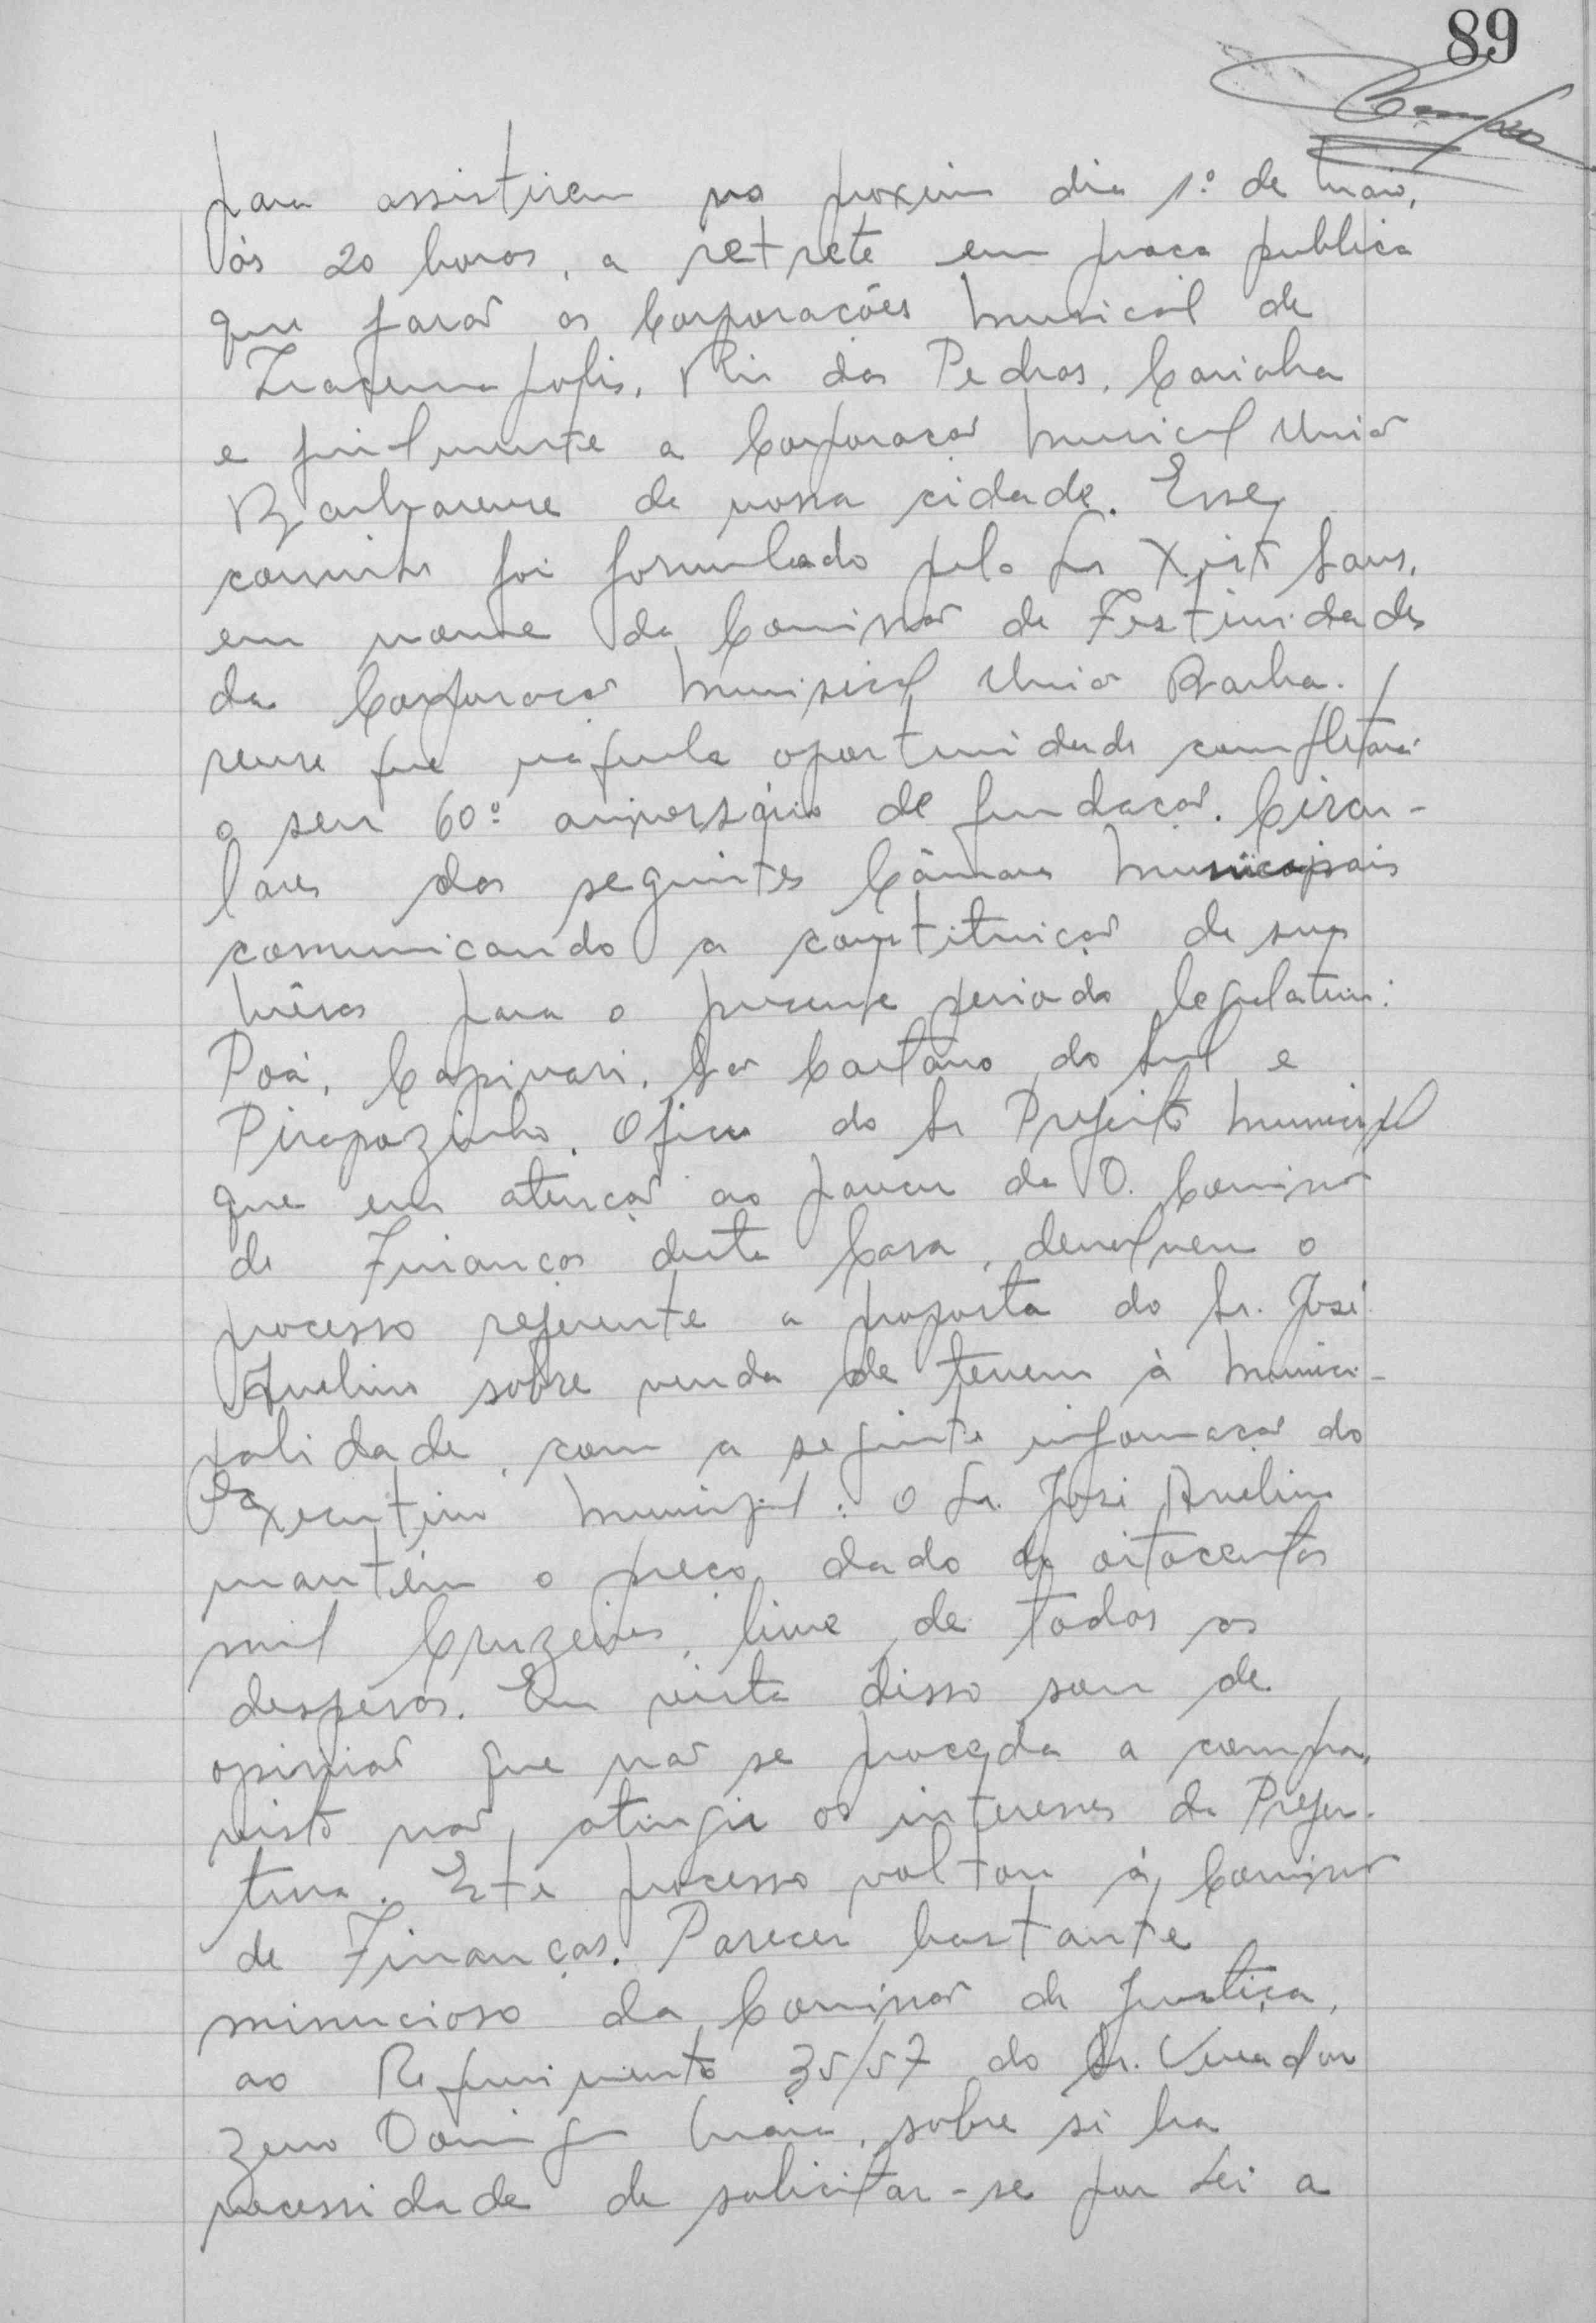 89
para assistirem no proximo dia 1º de Maio,
ás 20 horas, a retrete em praça publica
que farão as Corporações Musical de
Iracemapolis, Rio das Pedras, Carioba
e finalmente a Corporação Musical União
Barbarense de nossa cidade. Esse
convite foi formulado pelo Sr Xisto
em nome da Comissão de Festividades
da Corporação Musical União Barba-
rense que naquela oportunidade completará
o seu 60º aniversário de fundação. Circu-
lares das seguintes Câmaras Municipais
comunicando a constituição de suas
Mêsas para o presente periodo legislativo:
Poá, Capivari, São Caetano do Sul e
Pirapozinho. Oficio do Sr Prefeito Municipal
que em atenção ao parecer da D. Comissão
de Finanças desta Casa, devolveu o
processo referente a proposta do Sr. José
Avelino sobre venda de terreno à Munici-
palidade, com a seguinte informação do
Executivo Municipal: O Sr. José Avelino
mantém o preço dado de oitocentos
mil Cruzeiros, livre de todas as
despesas. Em vista disso sou de
opinião que não se proceda a compra,
visto não atingir os interesses da Prefei-
tura. Este processo voltou à Comissão
de Finanças. Parecer bastante
minucioso da Comissão de Justiça,
ao Requerimento 35/57 do Sr. Vereador
Zeno Domingos Maia, sobre si ha
necessidade de solicitar-se por Lei a